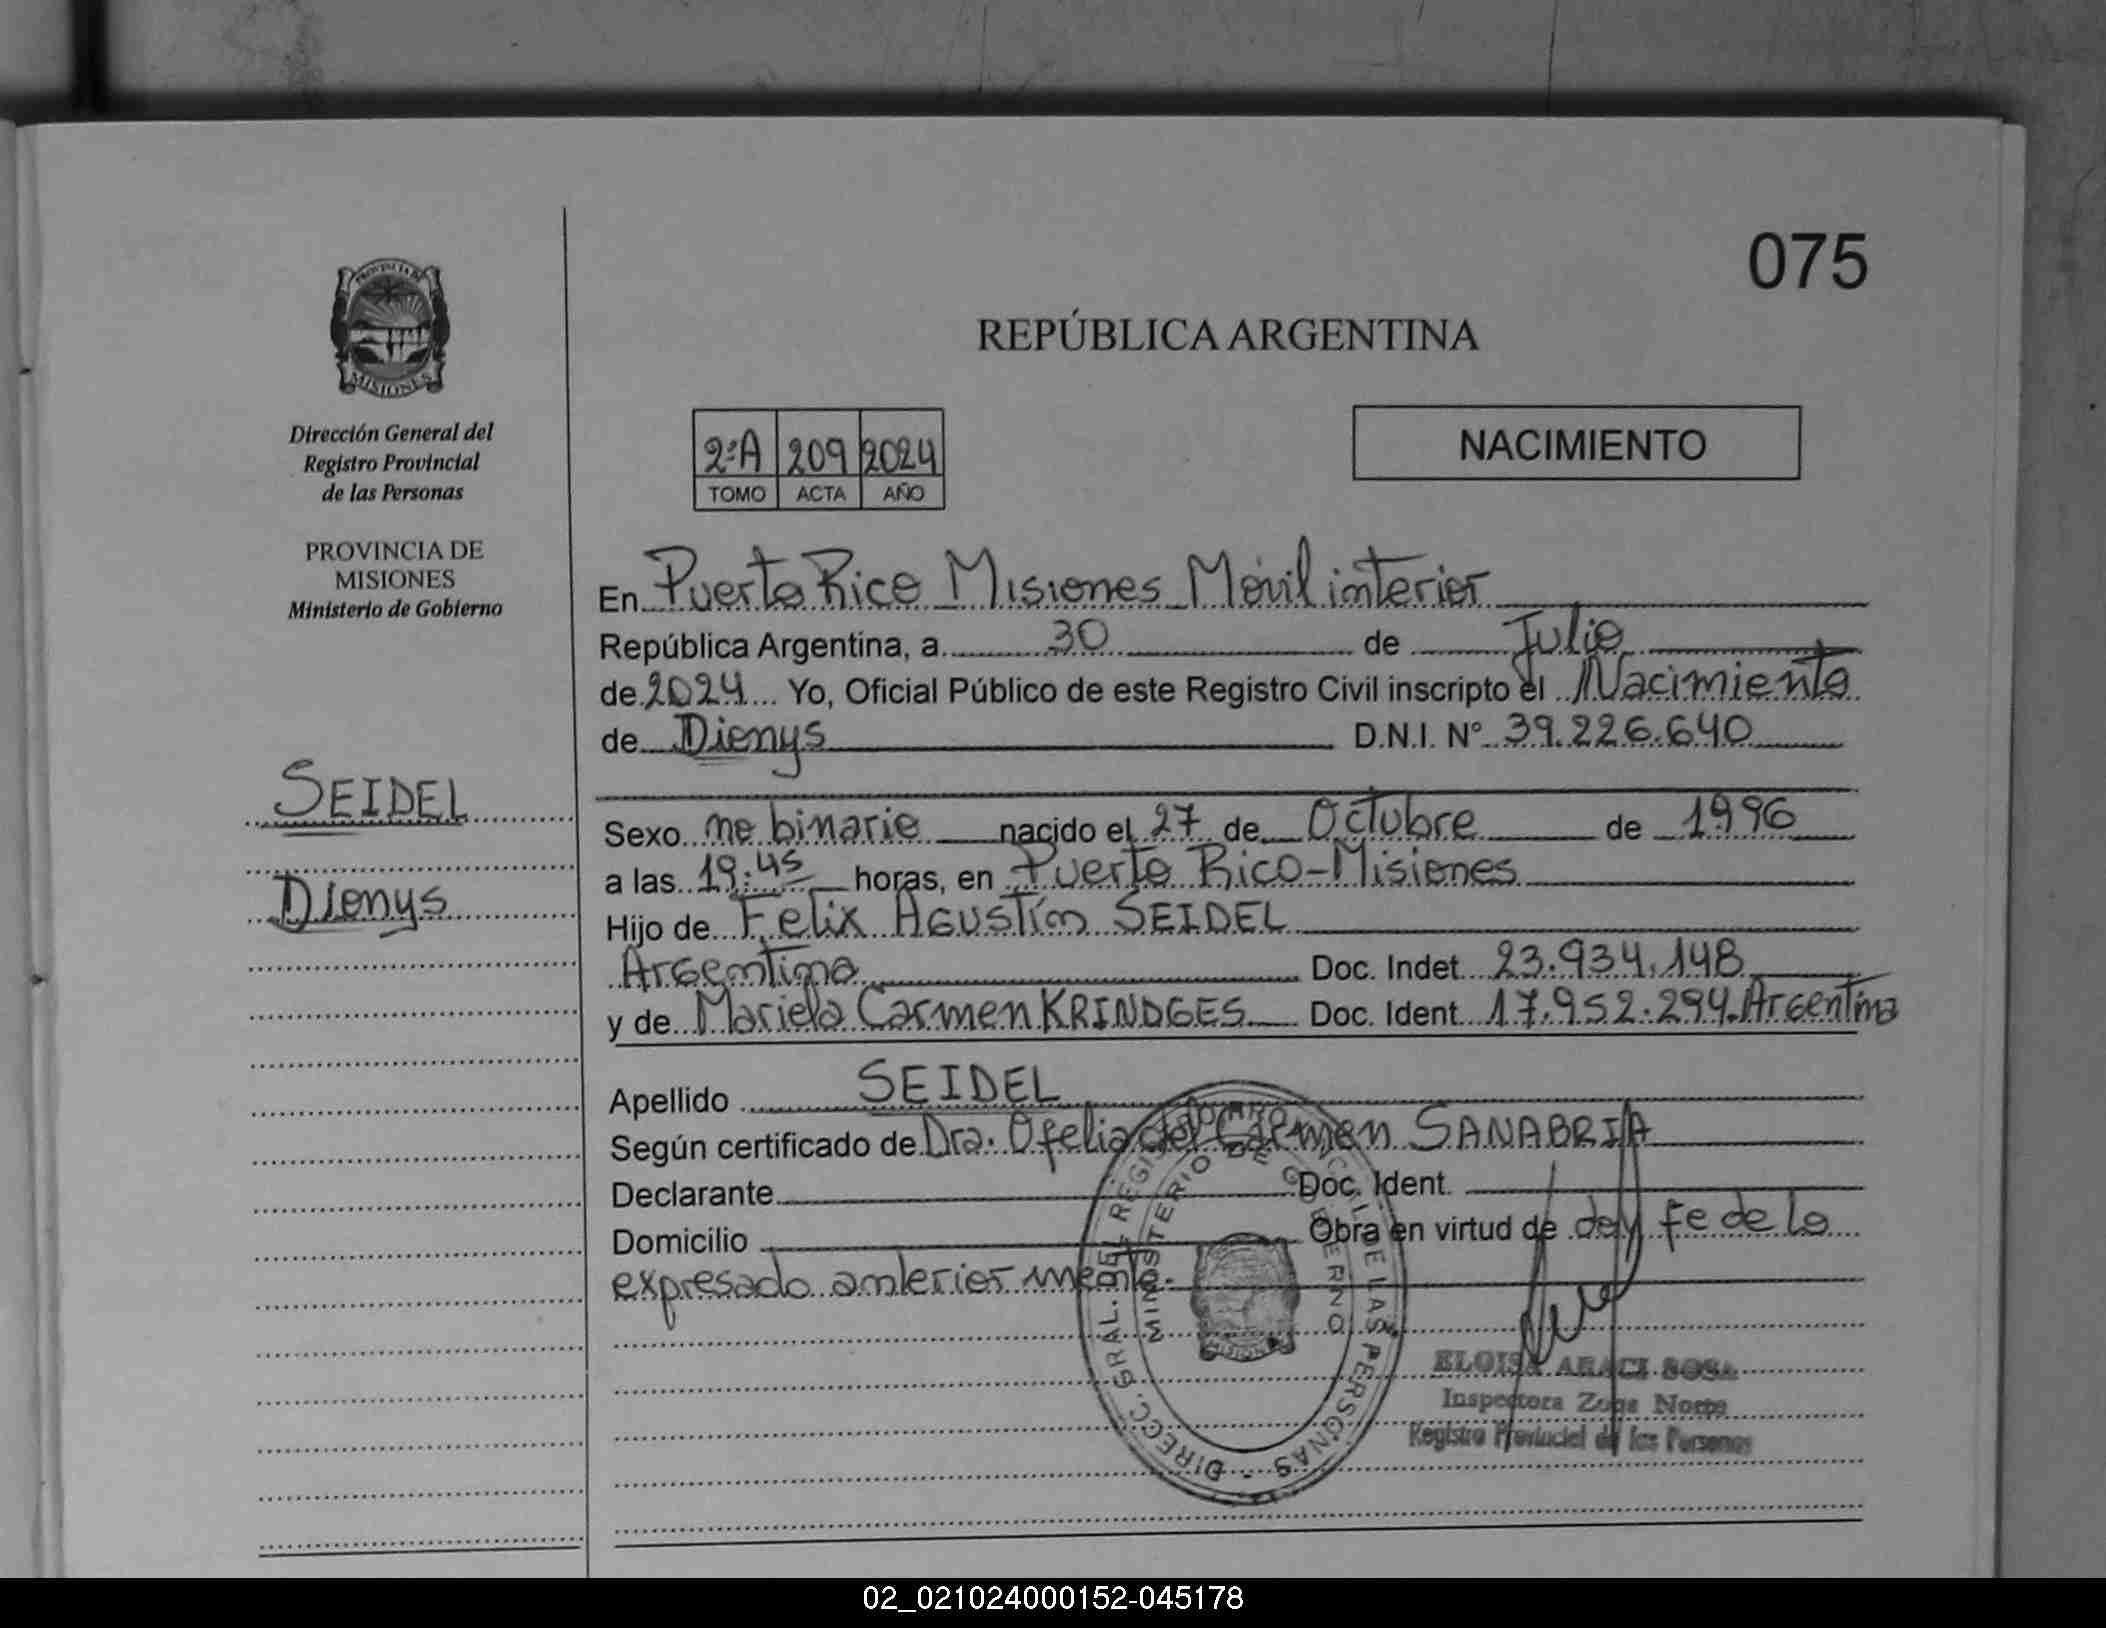 075
PROVINCIA DE
MISIONES
Dirección General del
Registro Provincial
de las Personas
PROVINCIA DE
MISIONES
Ministerio de Gobierno
SEIDEL
Dionys
REPÚBLICA ARGENTINA
2ºA 209 2024
TOMO ACTA AÑO
NACIMIENTO
En Puerto Rico Misiones Móvil interior
República Argentina, a 30 de Julio
de 2024 Yo, Oficial Público de este Registro Civil inscripto el Nacimiento
de Dionys D.N.I. Nº 39.226.640
Sexo no binario nacido el 27 de Octubre de 1996
a las 19:45 horas, en Puerto Rico-Misiones
Hijo de Felix Agustín SEIDEL
Argentina Doc. Indet 23.934.148
y de Mariela Carmen KRINDGES Doc. Ident 17.952.294.Argentina
Apellido SEIDEL
Según certificado de Dra. Ofelia del Carmen SANABRIA
Declarante Doc. Ident.
Domicilio Obra en virtud de doy fe de lo
expresado anteriormente.
DIRECC. GRAL. DEL REGISTRO CIVIL DE LAS PERSONAS
MINISTERIO DE GOBIERNO
MISIONES
ELOISA ARACI SOSA
Inspectora Zona Norte
Registro Provincial de las Personas
02_021024000152-045178